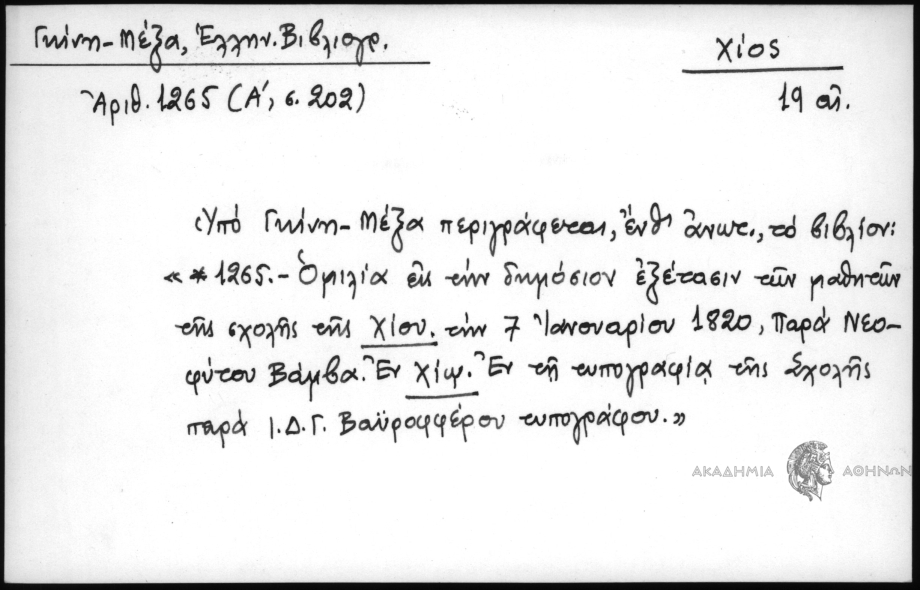 Γκίνη-Μέξα, Ἑλλην. Βιβλιογρ.
Χίος
Ἀριθ. 1265 (Α', σ. 202)
19 αἰ.
Ὑπό Γκίνη-Μέξα περιγράφεται, ἔνθ' ἀνωτ., τό βιβλίον:
« * 1265.- Ὁμιλία εἰς τήν δημόσιον ἐξέτασιν τῶν μαθητῶν
τῆς σχολῆς τῆς Χίου. τήν 7 Ἰανουαρίου 1820, Παρά Νεο-
φύτου Βάμβα. Ἐν Χίῳ. Ἐν τῇ τυπογραφίᾳ τῆς Σχολῆς
παρά Ι.Δ.Γ. Βαϋροφφέρου τυπογράφου.»
ΑΚΑΔΗΜΙΑ ΑΘΗΝΩΝ